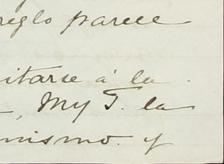 reglo parece
itarse á la
, My S. la
mismo. y